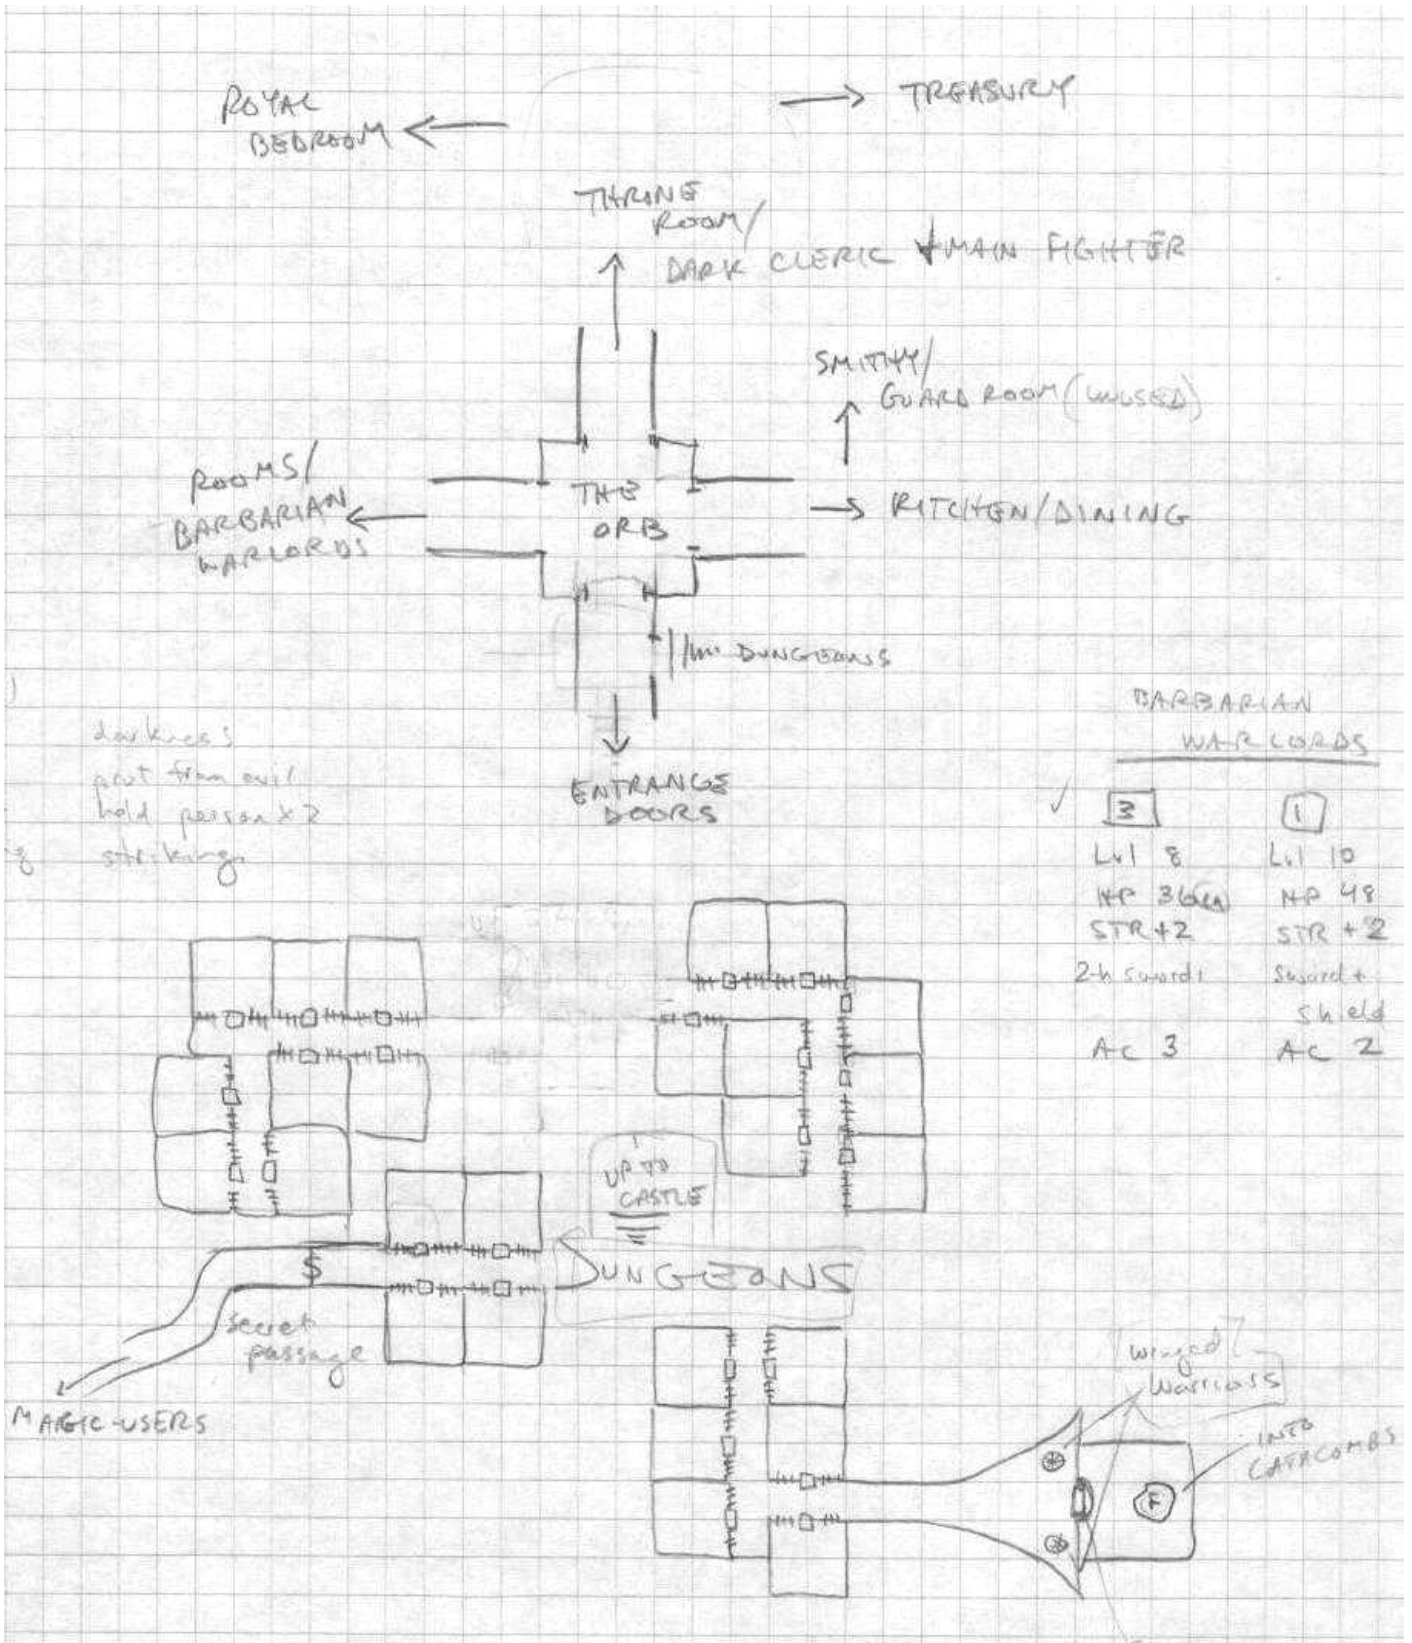 ROYAL
BEDROOM
TREASURY
THRONE
ROOM/
DARK CLERIC + MAIN FIGHTER
SMITHY/
GUARD ROOM (UNUSED)
ROOMS/
BARBARIAN
WARLORDS
THE
ORB
KITCHEN/DINING
DUNGEONS
ENTRANCE
DOORS
darkness
prot from evil
hold person x 2
striking
BARBARIAN
WARLORDS
3
1
Lvl 8
Lvl 10
HP 36
HP 48
STR +2
STR +2
2-h swords
Sword +
shield
AC 3
AC 2
UP TO
CASTLE
DUNGEONS
$
secret
passage
MAGIC-USERS
winged
warriors
INTO
CATACOMBS
F